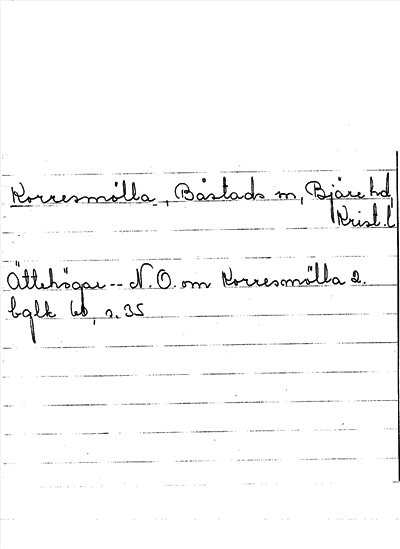 Korresmölla, Båstads m, Bjäre hd,
Krist. l
Ättehögar -- N.O. om Korresmölla 2.
bglk 60, s. 35